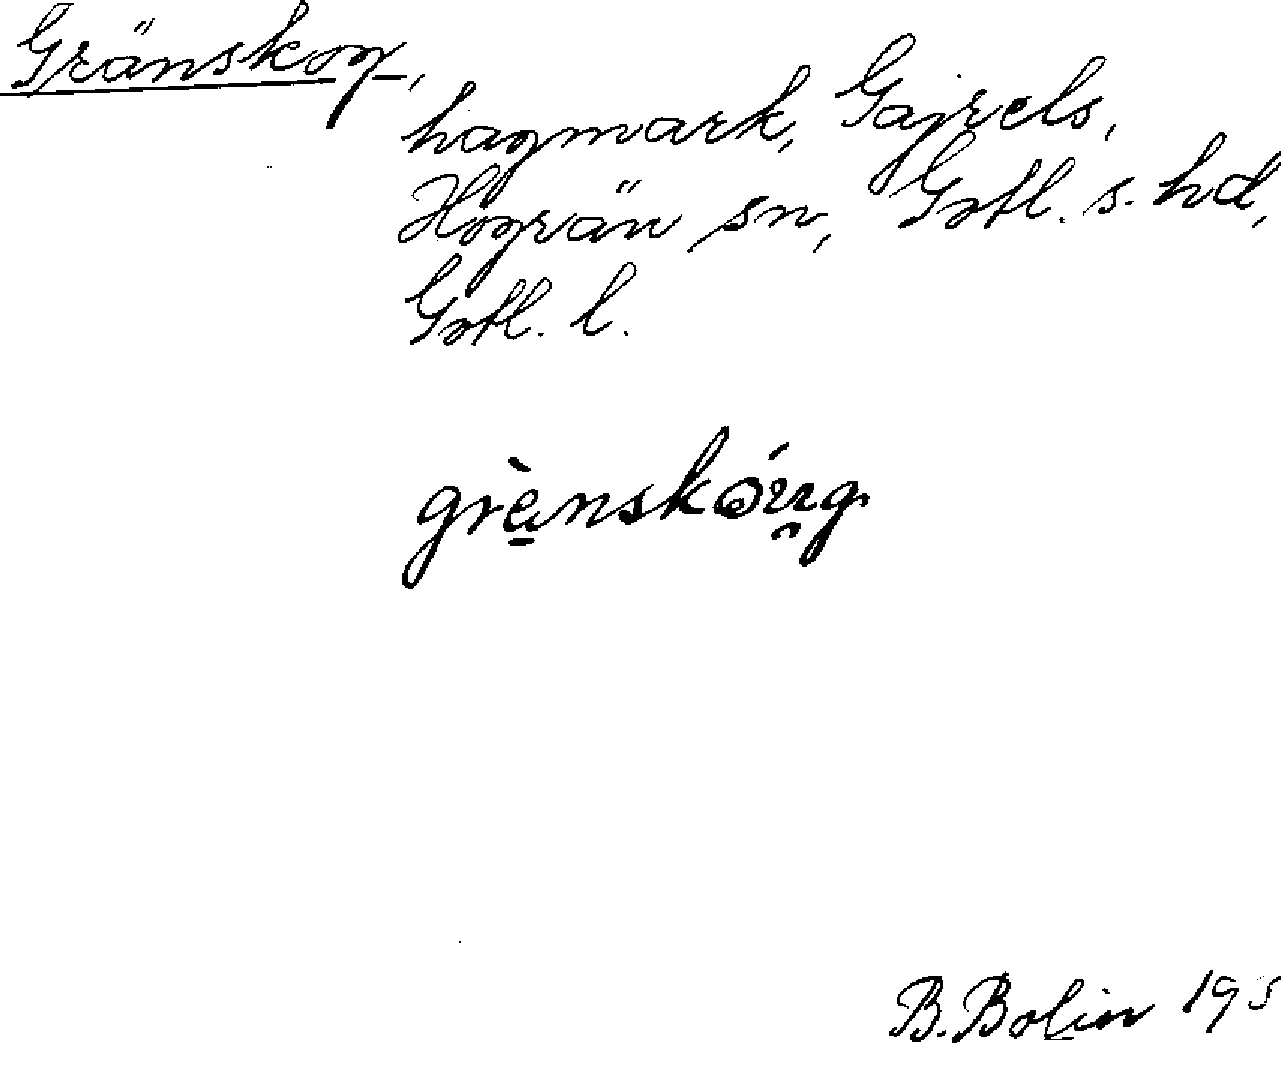 Gränskog,
hagmark, Gajrels,
Hogrän sn, Gotl. s. hd,
Gotl. l.
B. Bolin 195